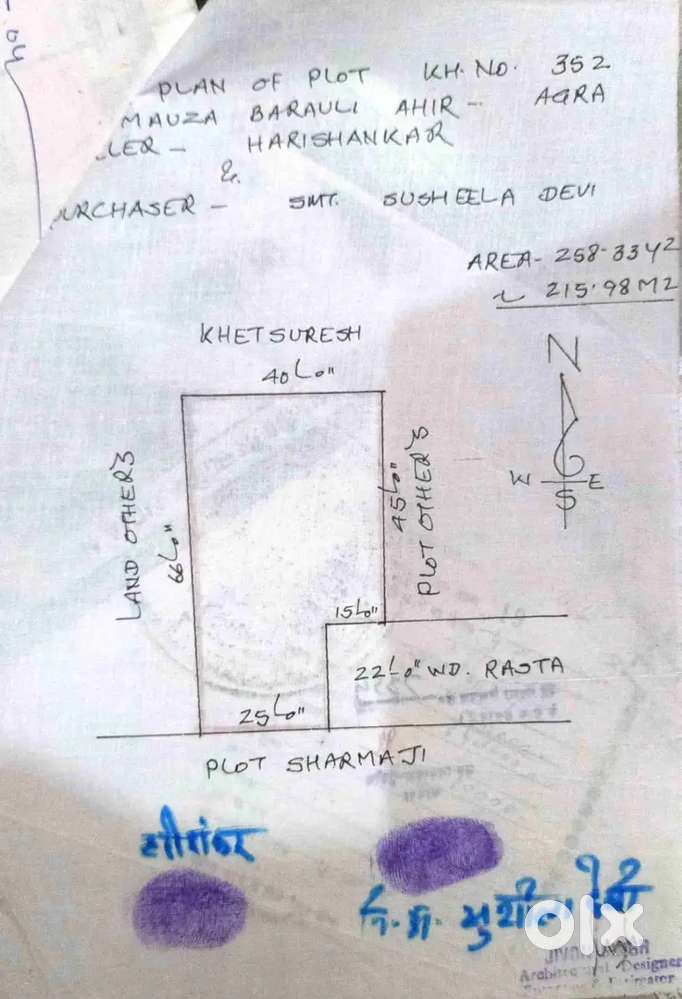 PLAN OF PLOT KH. NO. 352
MAUZA BARAULI AHIR - AGRA
LER - HARISHANKAR
&
URCHASER - SMT. SUSHEELA DEVI
AREA - 258.33 Y2
215.98 M2
KHET SURESH
40'-0"
N
W E
S
LAND OTHER'S
66'-0"
45'-0"
PLOT OTHER'S
15'-0"
22'-0" WD. RASTA
25'-0"
PLOT SHARMAJI
OLX
Designer